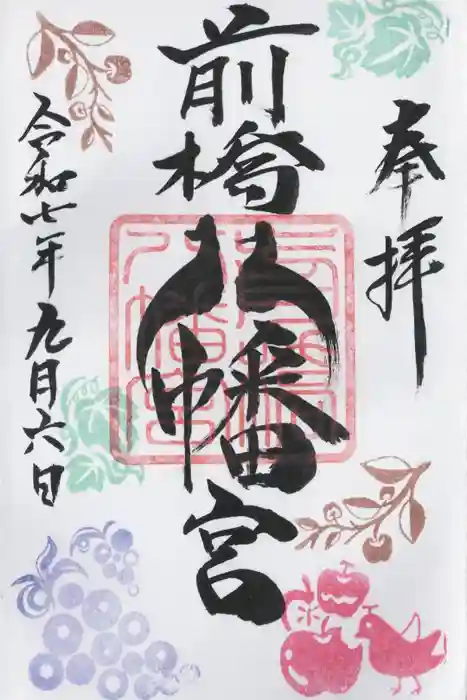 奉拝
前橋八幡宮
令和七年九月六日